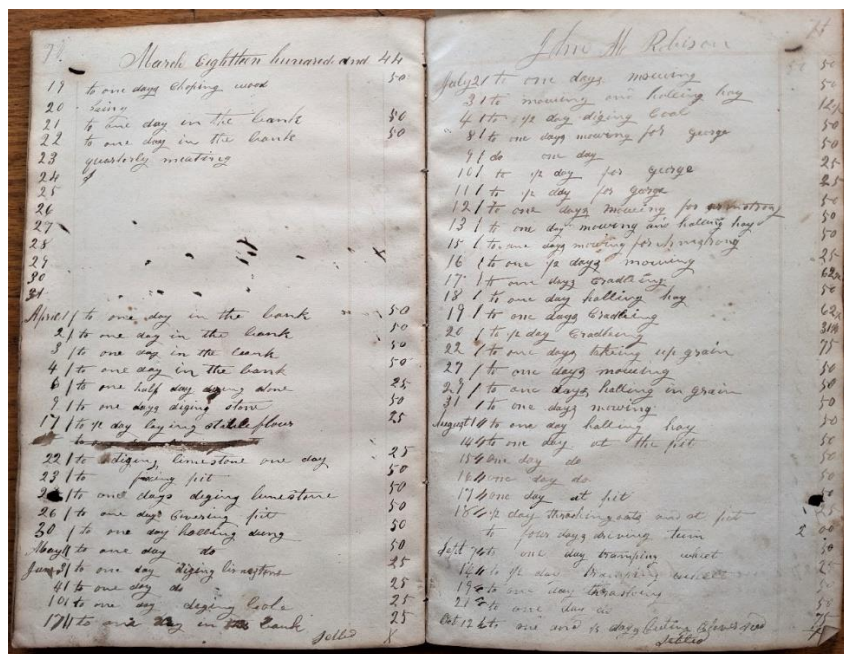 March Eighteen huneared and 44
19 to one days choping wood 50
20
21 to one day in the bank 50
22 to one day in the bank 50
23 quarterly meating
24
25
26
27
28
29
30
31
April 1 / to one day in the bank 50
2 / to one day in the bank 50
3 / to one day in the bank 50
4 / to one day in the bank 50
6 / to one half day done 25
9 / to one days diging stone 50
17 / to ½ day laying stable flour 25
to
22 / to diging limestone one day 25
23 / to pit 50
/ to one days diging limestone 50
26 / to one days Covering pit 50
30 / to one day halling dung 50
May to one day do 50
June to one day diging limestone 25
4 / to one day do 25
10 / to one day diging Cole 25
17 to one day in bank 25
Setled X
John M Robison
July 2 to one days mowing 50
3 / to mowing and halling hay 50
4 / to ½ day diging Coal 12½
8 / to one days mowing for george 50
9 / do one day 50
10 / to ½ day for george 25
11 / to ½ day for gorge 25
12 / to one days mowing for armstrong 50
13 / to one day mowing and halling hay 50
15 / to one days mowing for armstrong 50
16 / to one ½ days mowing 25
17 / to one days Cradleing 62½
18 / to one day halling hay 50
19 / to one days Cradling 62½
20 / to ½ day Cradleing 31¼
22 / to one days takeing up grain 75
27 / to one days mowing 50
29 / to one days halling in grain 50
31 / to one days mowing 50
August 1 to one day halling hay 50
14 to one day at the pit 50
15 one day do 50
16 one day do 50
17 one day at pit 50
18 ½ day thrashing oats and at pit 25
to four days driving team 2 00
Sept 7 to one day tramping wheat 50
14 to ½ day tramping 25
19 to one day thrashing 50
21 to one day do 50
Oct 12 to one and ½ days Cuting Cloverseed 75
Setled